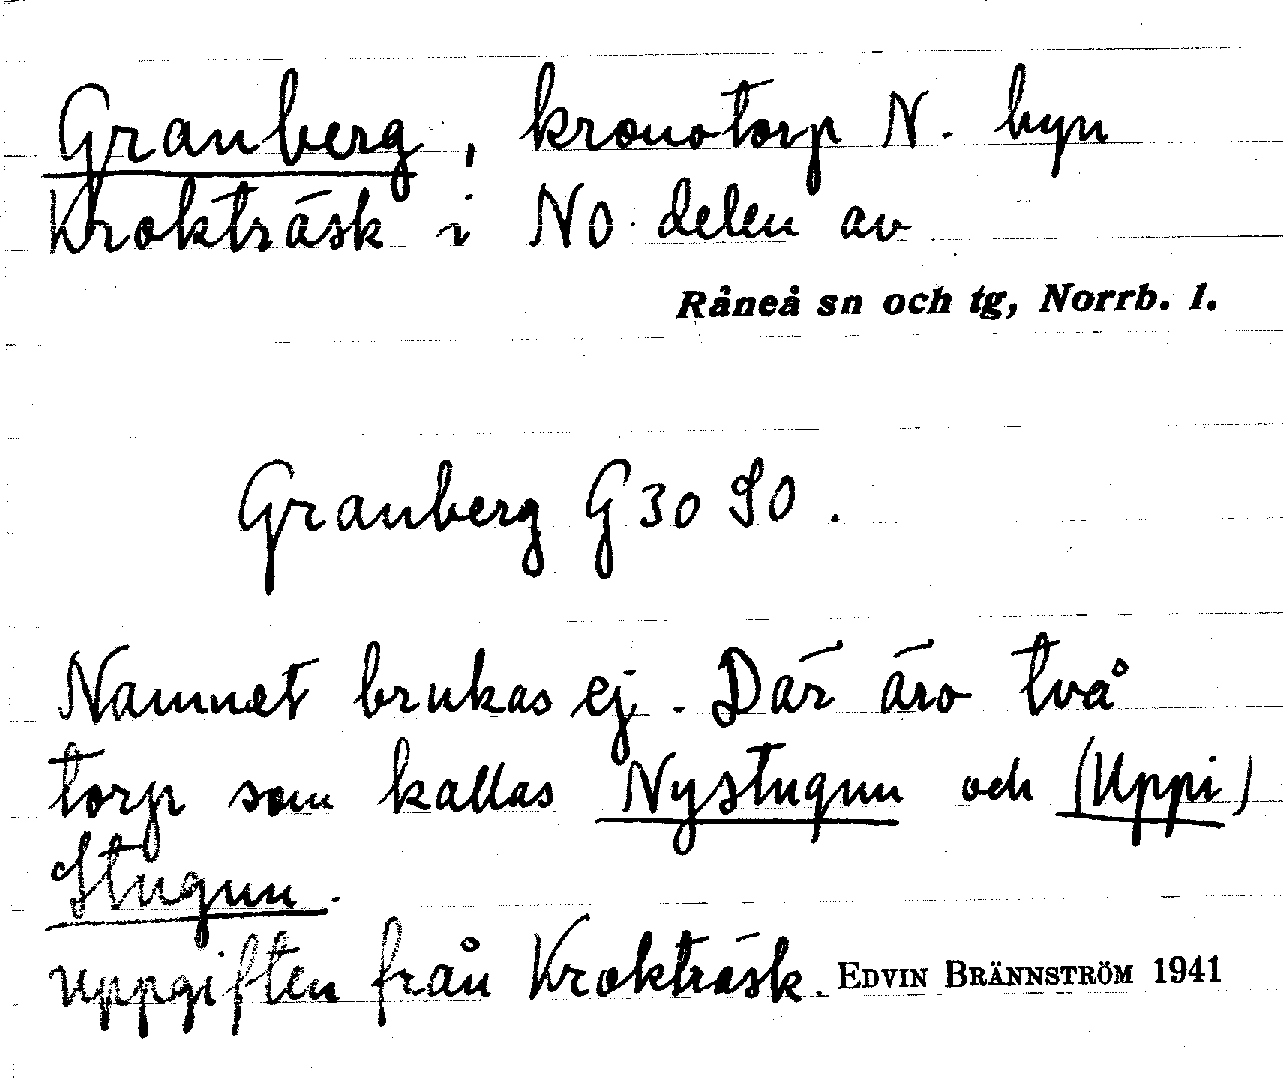 Granberg, kronotorp N. byn
Krokträsk i NO delen av
Råneå sn och tg, Norrb. l.
Granberg G 30 SO.
Namnet brukas ej. Där äro två
torp som kallas Nystugun och (Uppi)
Stugun.
uppgiften från Krokträsk. EDVIN BRÄNNSTRÖM 1941